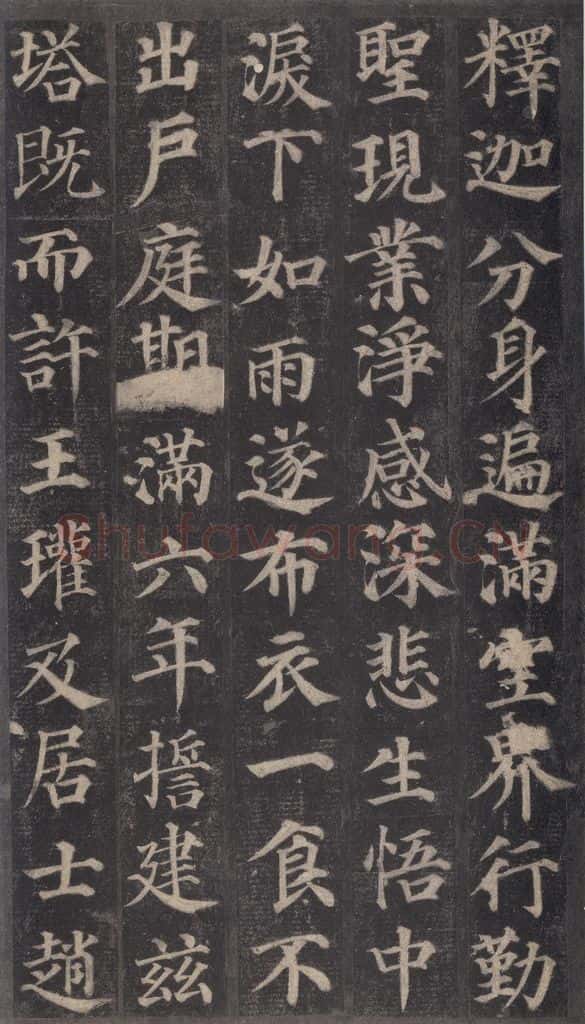 釋迦分身遍滿空界行勤
聖現業淨感深悲生悟中
淚下如雨遂布衣一食不
出戶庭期滿六年誓建茲
塔既而許王瓘及居士趙
Shufawang.CN